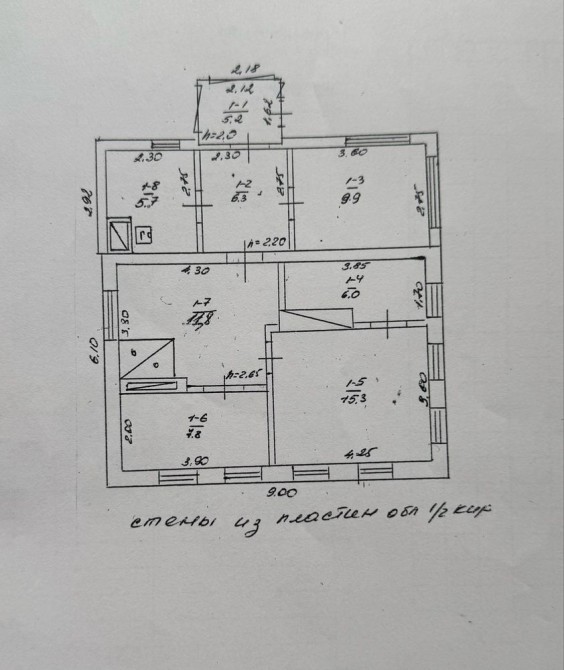 2,18
2,12
1-1
5,2
1,62
h=2,0
2,30
2,30
3,60
2,92
1-8
5,7
2,75
1-2
6,3
2,75
1-3
9,9
2,75
h=2,20
4,30
3,85
1-4
6,0
1,70
1-7
3,30
6,10
h=2,65
1-5
15,3
3,60
1-6
7,8
2,00
3,90
4,25
9,00
стены из пластин обл 1/2 кир